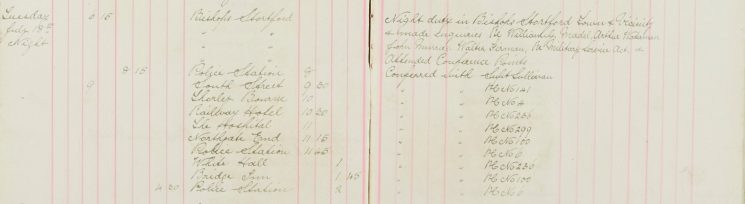 Tuesday 9 15 Bishops Stortford Night duty in Bishops Stortford Town & Vicinity
July 18th " & made Inquiries Re William Arthur
Night " John Walter Re Military Service Act. &
" Attended Conference Points
8 15 Police Station 8 Conferred with Supt Sullivan
9 South Street 9 30 " PC No 141
Thorley Bourne 10 " PC No 4
Railway Hotel 10 30 " PC No 230
The Hospital 11 " PC No 299
Northgate End 11 15 " PC No 100
Police Station 11 45 " PC No 6
White Hall 1 " PC No 230
Bridge Inn 1 45 " PC No 100
4 30 Police Station 2 " PC No 6